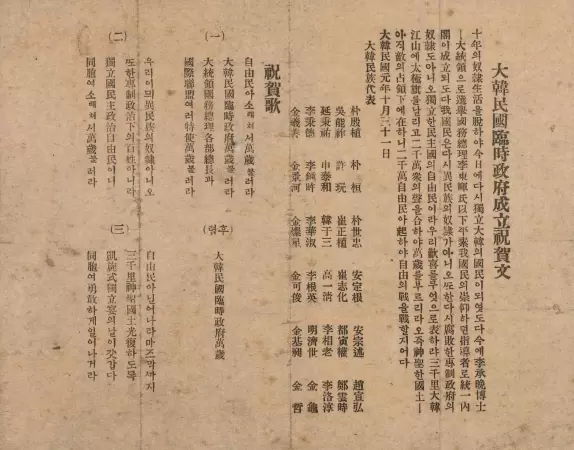 大韓民國臨時政府成立祝賀文
十年의奴隷生活을脫하야今日에다시獨立大韓의國民이되엿도다今에李承晩博士
―大統領으로選擧國務總理李東輝氏以下平素我國民의崇仰하던指導者로統一內
閣이成立되도다我國民은다시異民族의奴隷가아니오또한다시腐敗한專制政府의
奴隷도아니오獨立한民主國의自由民이라우리歡喜를무엇으로表하랴三千里大韓
江山에太極旗를날리고二千萬衆의聲을合하야萬歲를부르리라오즉神聖한國土―
아직敵의占領下에在하니二千萬自由民아起하야自由의戰을戰할지어다
大韓民國元年十月三十一日
大韓民族代表
朴殷植 朴桓 朴世忠 安定根 安宗述 趙宣弘
吳能祚 許玩 崔正植 崔志化 都寅權 鄭雲時
延秉祐 申泰和 韓于三 高一淸 李相老 李洛淳
李秉德 李華淑 李根英 明濟世 金龜
金羲善 金景河 金燦星 金可俊 金基昶 金哲
祝賀歌
(一)
自由民아소래쳐서萬歲불러라
大韓民國臨時政府萬歲불러라
大統領國務總理各部總長과
國際聯盟여러特使萬歲불러라
(후렴)
大韓民國臨時政府萬歲
(二)
우리이믜異民族의奴隷아니오
또한專制政治下의百姓아니라
獨立國民主政治自由民이니
同胞여소래쳐서萬歲불러라
(三)
自由民아닐어나라마즈막까지
三千里神聖國土光復하도록
凱旋式獨立宴의날이갓갑다
同胞여勇敢하게일어나거라